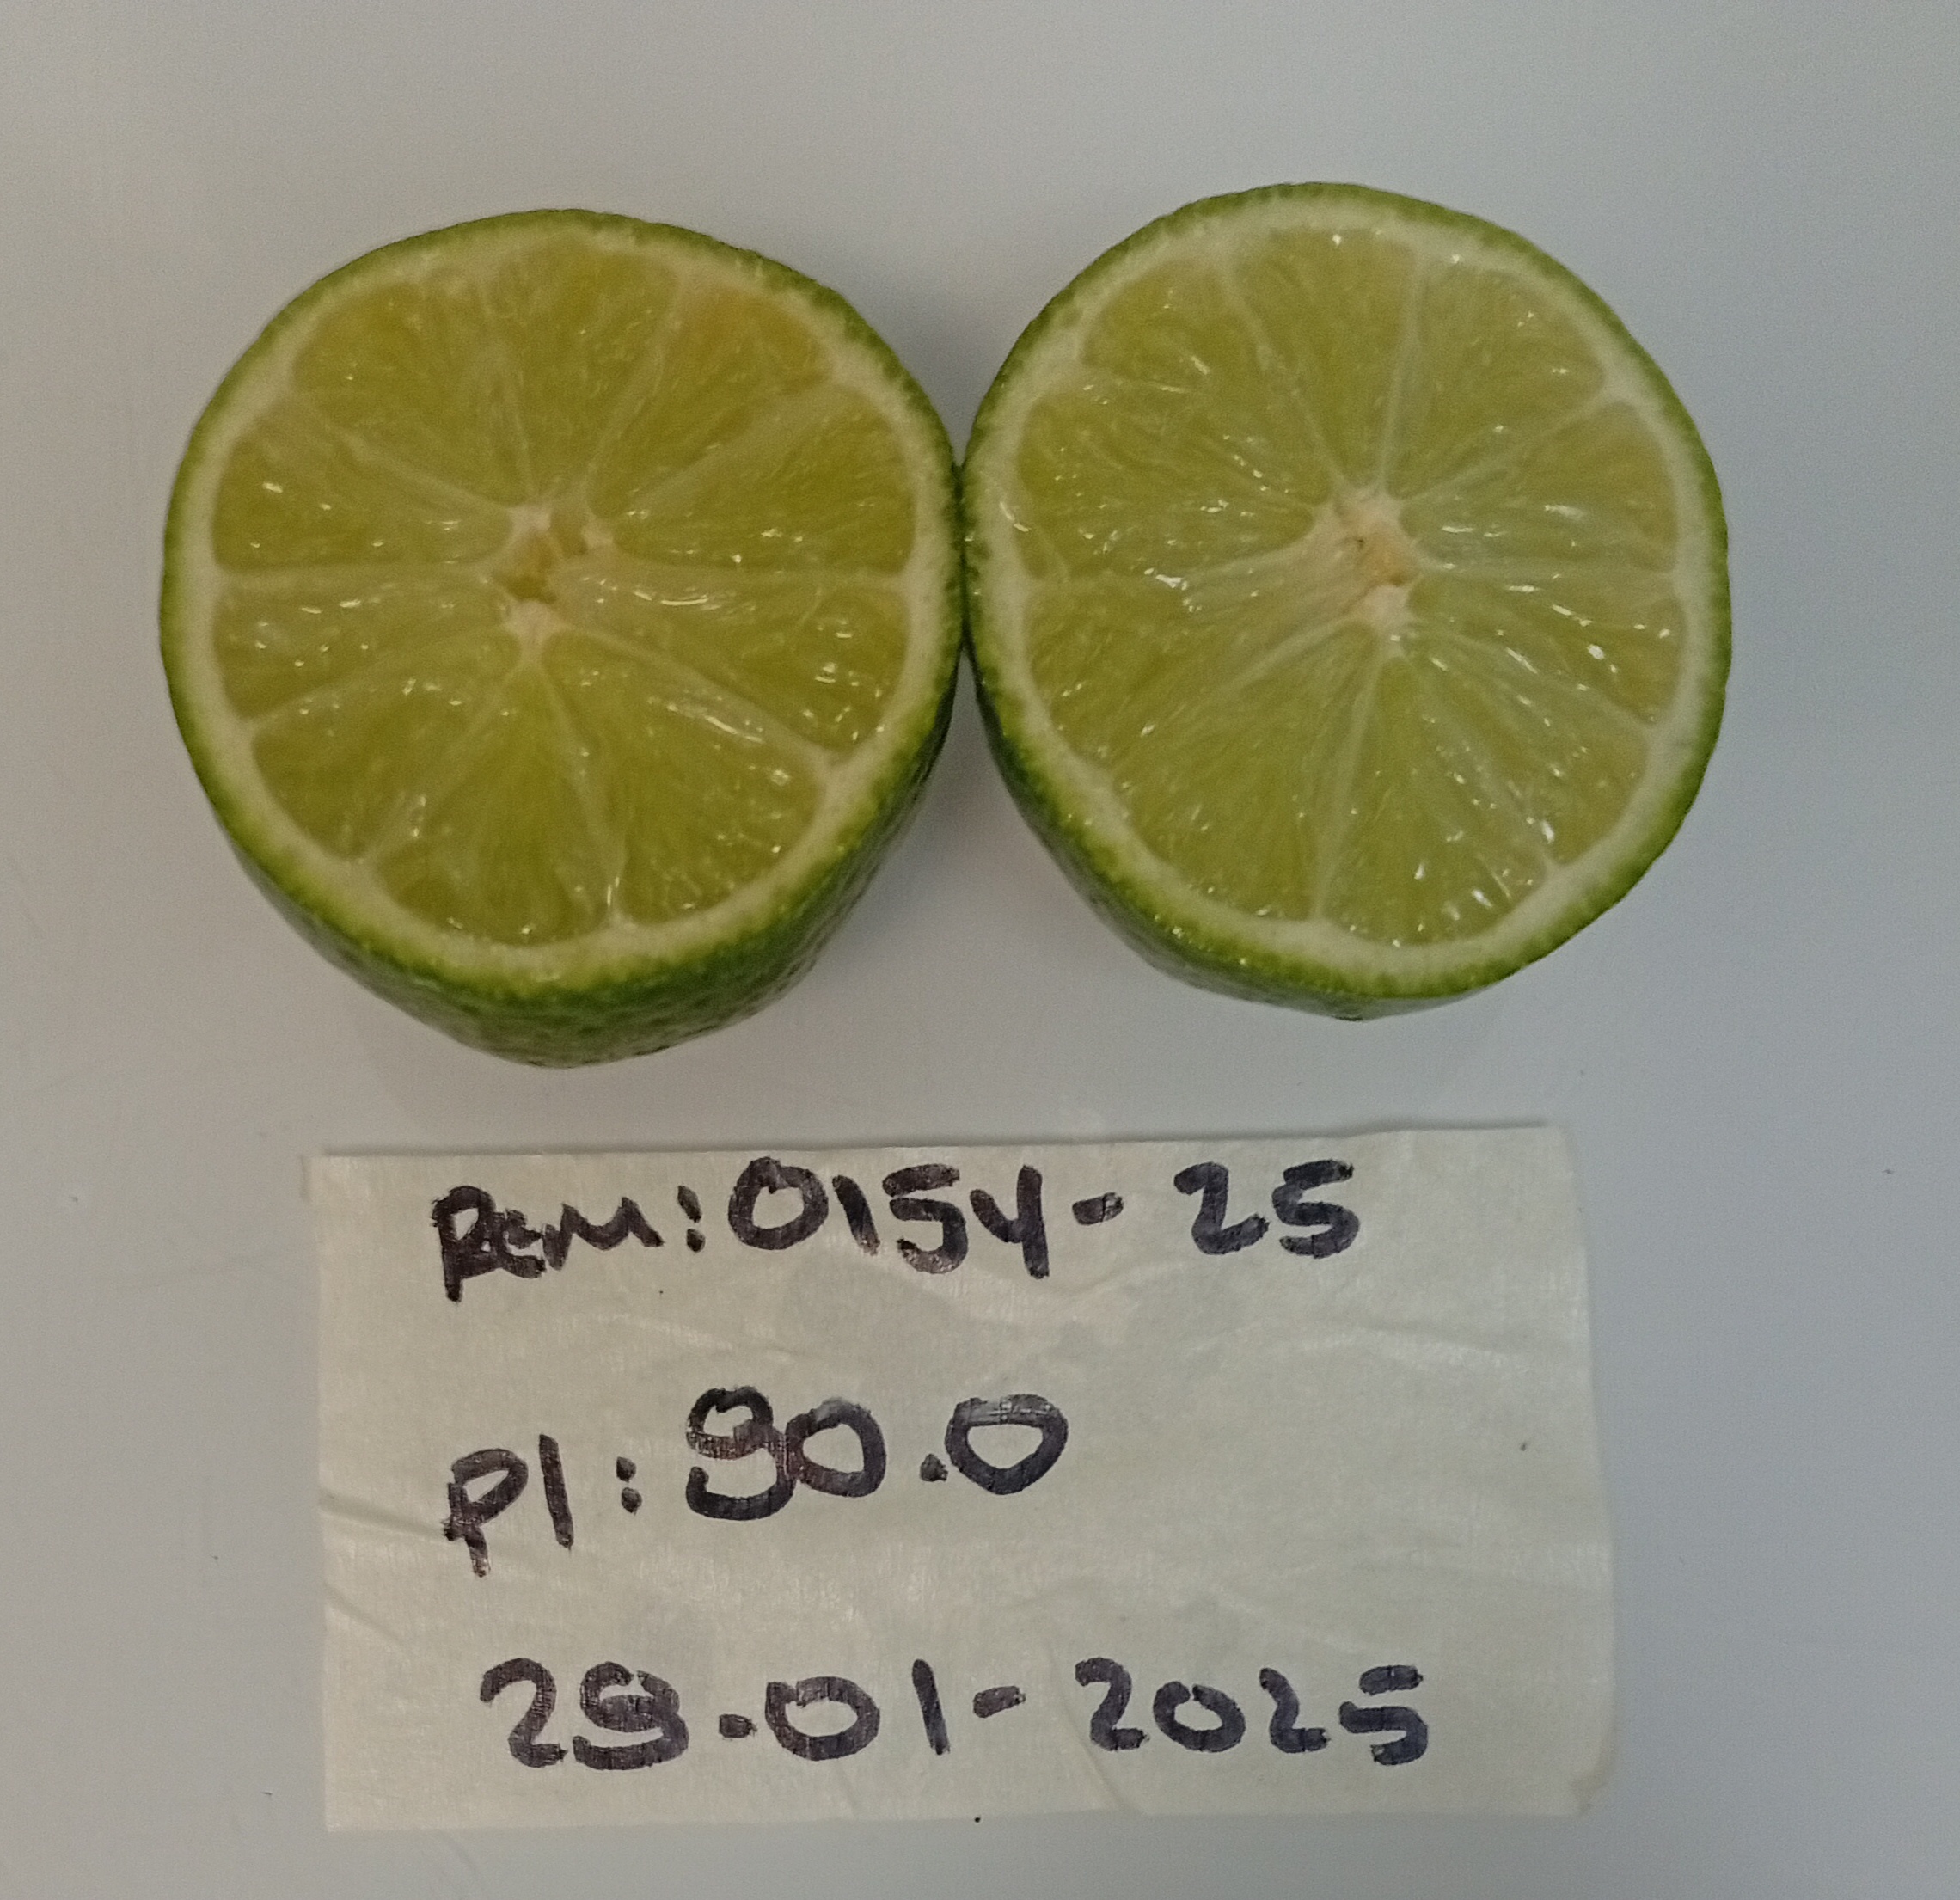 Rem: 0154-25
Pl: 90.0
29.01-2025